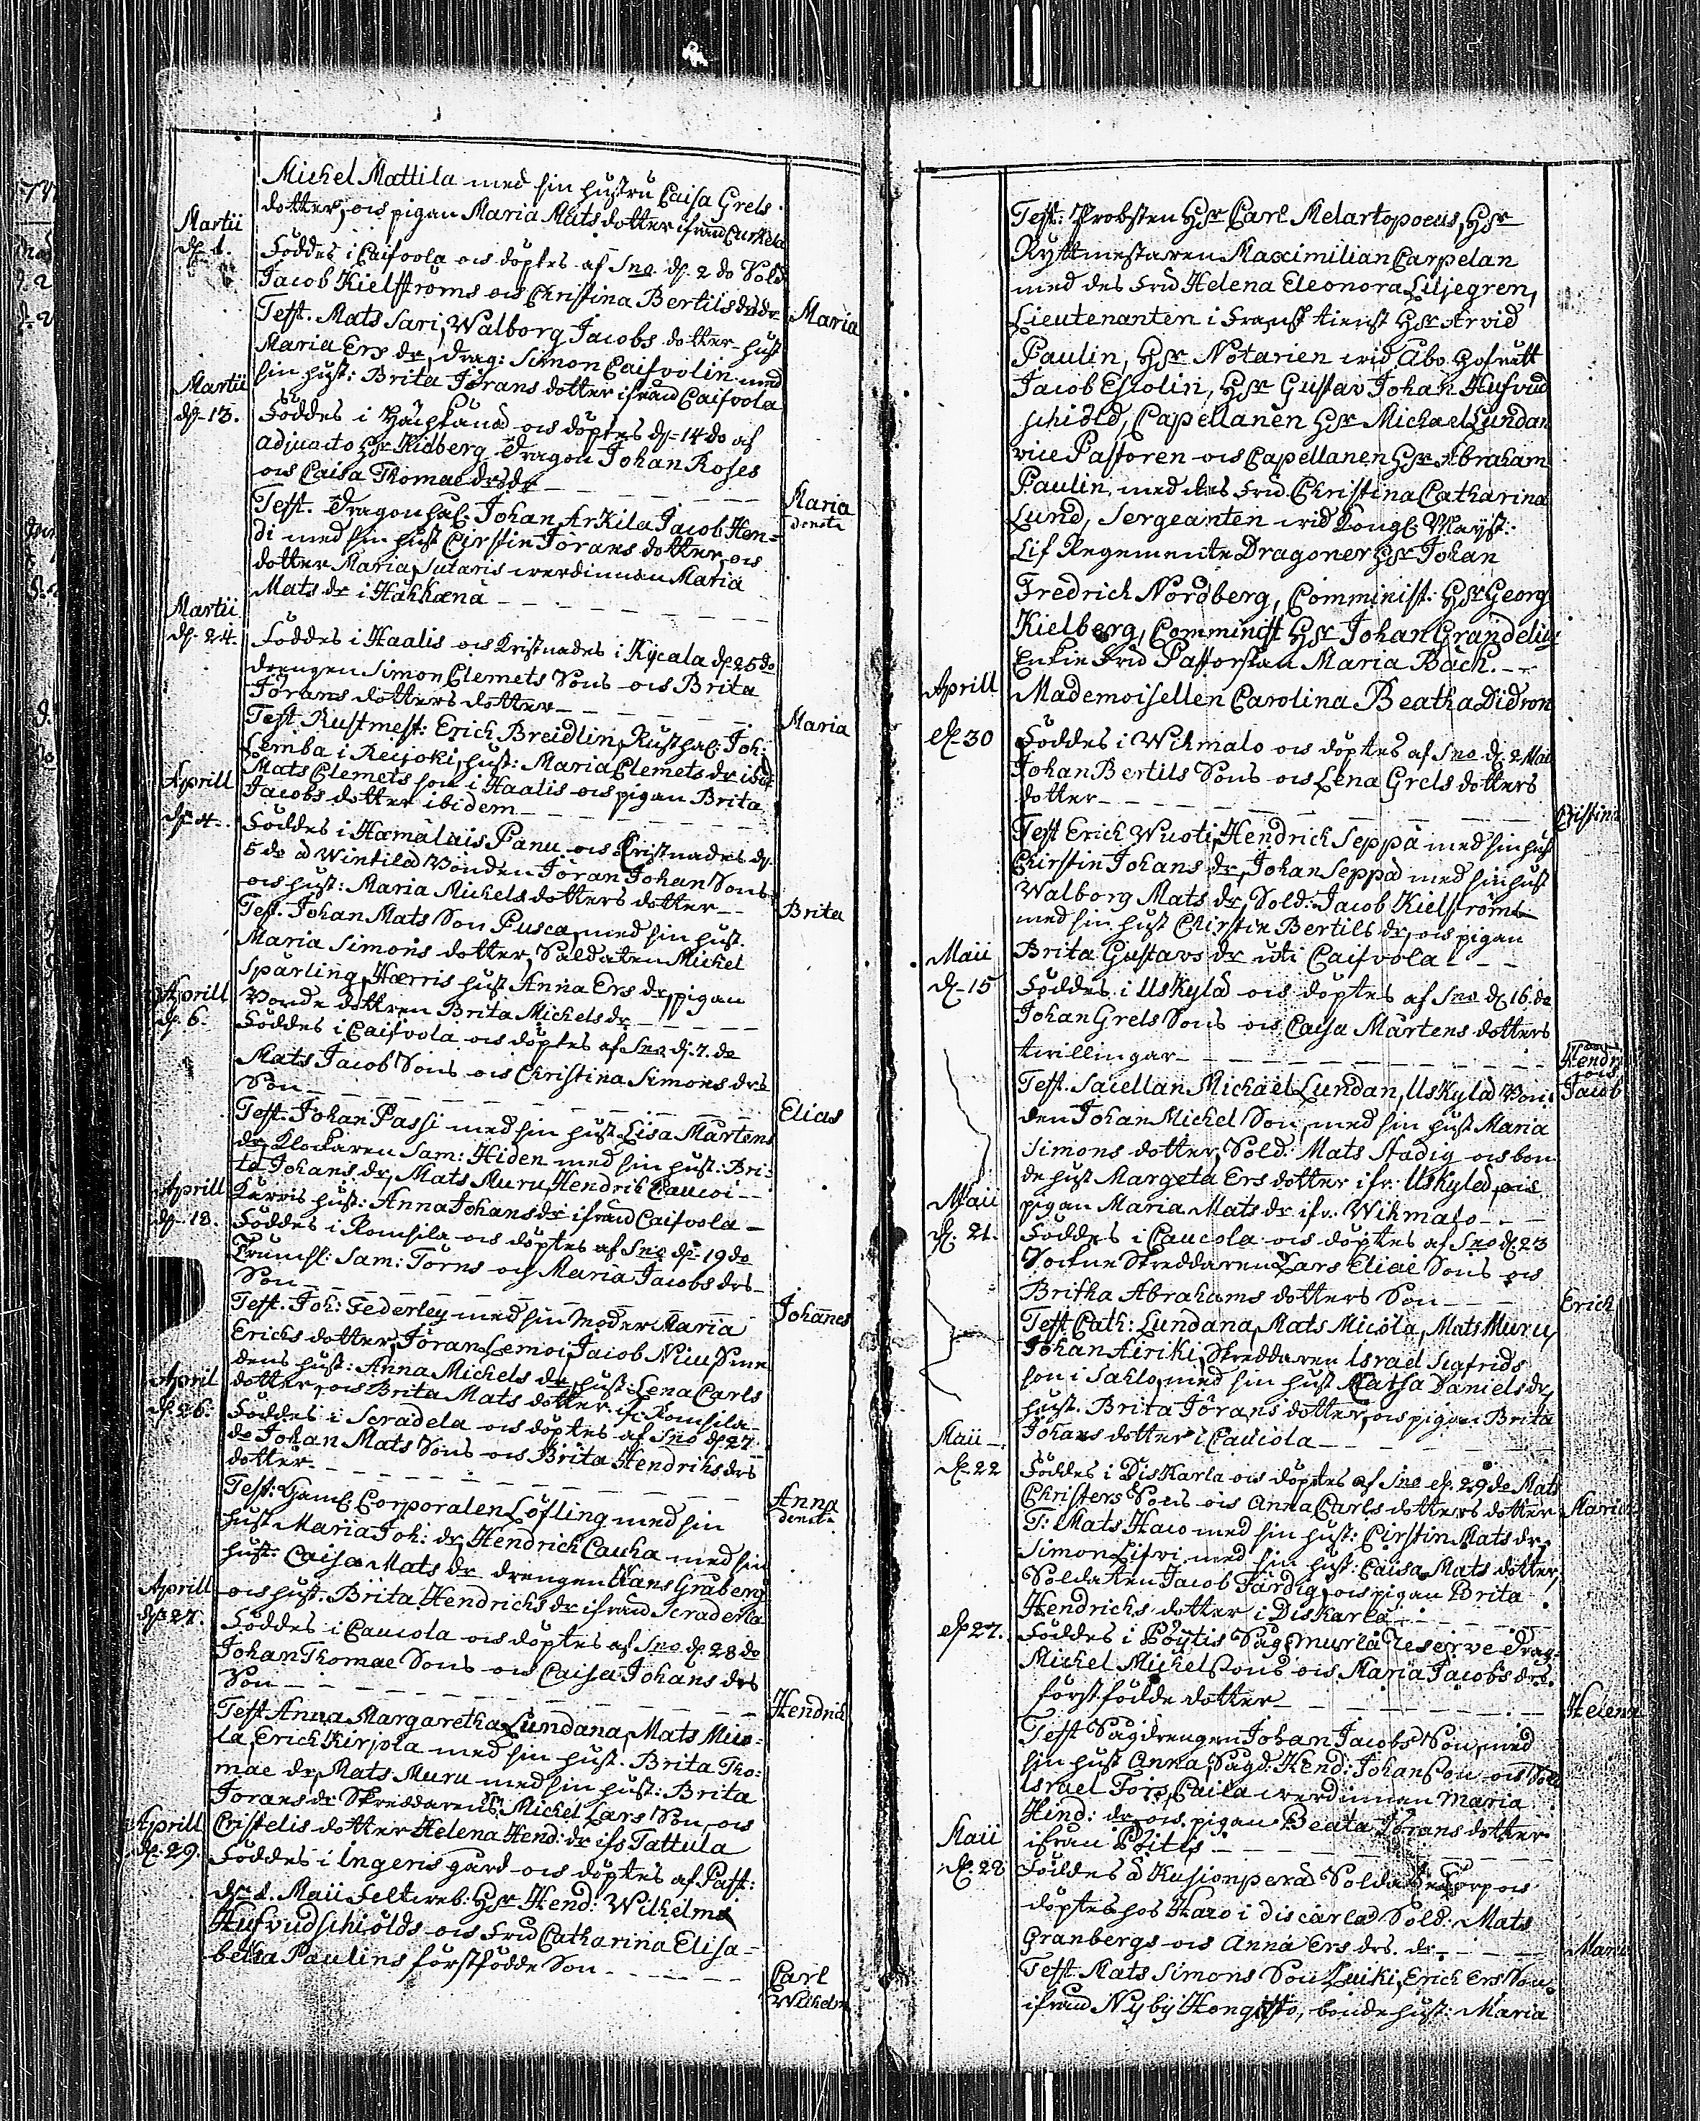 Michel Mattila med sin hustru Caisa Grels
dotter, ock pigan Maria Mats dotter ifrån Curkela
Martii
d. 1.
Föddes i Caifvola ock döptes af Sno d. 2 do Sold
Jacob Kielströms ock Christina Bertils ds dr
Maria
Test. Mats Sari, Walborg Jacobs dotter hust
Maria Ers dr, Drag: Simon Caifvolin med
sin hust: Brita Jörans dotter ifrån Caifvola
Martii
d. 13.
Föddes i ock döptes d. 14 do af
adjuncto Hr Kidberg Dragon Johan Roses
ock Caisa Thomae ds dr
Maria
denata
Test. Dragon Johan Arkila Jacob Hen-
di med sin hust Cirstin Jörans dotter, ock
dotter Maria, Sutaris werdinnan Maria
Mats dr i Hakhæna
Martii
d. 24.
Föddes i Haalis ock Kristnades i Kycala d. 25 do
drengen Simon Clemets Sons ock Brita
Jörans dotters dotter
Maria
Test. Rustmest: Erich Breidlin, Rusth: Joh:
Lemba i Reijoki, hust: Maria Clemets dr ibid
Mats Clemets son i Haalis ock pigan Brita
Jacobs dotter ibidem
Aprill
d. 4.
Föddes i Hæmälais Panu ock Cristnades d.
5 do å Wintila Bonden Jöran Johan Sons
ock hust: Maria Michels dotters dotter
Brita
Test. Johan Mats Son Pusca, med sin hust.
Maria Simons dotter, Soldaten Michel
Sparling, Hærris hust Anna Ers dr, pigan
Bonde dottren Brita Michels dr
Aprill
d. 6.
Föddes i Caifvola ock döptes af Sno d. 7. do
Mats Jacob Sons ock Christina Simons drs
Son
Elias
Test. Johan Passi med sin hust. Lisa Mårtens
dr, Klockaren Sam: Hiden med sin hust: Bri-
ta Johans dr, Mats Muru, Hendrich Caucoi
Kurris hust: Anna Johans dr ifrån Caifvola
Aprill
d. 18.
Föddes i Romsila ock döptes af Sno d. 19 do
Trumsl: Sam: Törns och Maria Jacobs drs
Son
Johannes
Test. Joh: Federley med sin Moder Maria
Erichs dotter, Jöran Lemoi, Jacob Niu, Sme
dens hust: Anna Michels dr, hust: Lena Carls
dotter, ock Brita Mats dotter if. Romsila
April
d. 26.
Föddes i Scradela ock döptes af Sno d. 27
do Johan Mats Sons ock Brita Hendrichs drs
dotter
Anna
denata
Test: Gaml Corporalen Löfling med sin
hust Maria Joh: dr, Hendrich Cauha med sin
hust: Caisa Mats dr drengen Hans Gråberg
ock hust. Brita Hendrichs dr ifrån Scraderla
Aprill
d. 27.
Föddes i Caucola ock döptes af Sno d. 28 do
Johan Thomae Sons ock Caisa Johans drs
Son
Hendrich
Test Anna Margaretha Lundana, Mats Mico-
la, Erich Kirjola med sin hust. Brita Tho-
mae dr, Mats Muru med sin hust: Brita
Jorans dr Skreddarens Michel Lars Son, ock
Cristelis dotter Helena Hend: dr ifr Tattula
Aprill
d. 29.
Föddes i Ingeris gård ock döptes af Past:
d. 1. Maii Feltweb: Hr Hend: Wilhelms
Hufvudschiolds ock Fru Catharina Elisa-
betha Paulins förstfödde Son
Carl
Wilhelm
Test: Probsten Hr Carl Melartopoeus, Hr
Ryttmestaren Maximilian Carpelan
med des Fru Helena Eleonora Liljegren,
Lieutenanten i Fransk tienst Hr Arvid
Paulin, Hr Notarien wid Åbo Hofrätt
Jacob Escolin, Hr Gustav Johan Hufvud
schiöld, Capellanen Hr Michael Lundan
vice Pastoren ock Capellanen Hr Abraham
Paulin, med des Fru Christina Catharina
Lund, Sergeanten wid Kongl Mayst:
Lif Regemente Dragoner Hr Johan
Fredrich Nordberg, Comminist: Hr Georg
Kielberg, Comminist Hr Johan Grandelius
Enkie Fru Pastorskan Maria Bach.
Mademoisellen Carolina Beatha Didron
Aprill
d. 30
Föddes i Wihmalo ock döptes af Sno d. 2 Maii
Johan Bertils Sons ock Lena Grels dotters
dotter
Cristina
Test Erich Wuoti, Hendrich Seppä med sin hust
Chirstin Johans dr, Johan Seppä med sin hust
Walborg Mats dr, Sold: Jacob Kielströms
med sin hust Chirstin Bertils dr, ock pigan
Brita Gustavs dr uti Caifvola
Maii
d. 15
Föddes i Uskylä ock döptes af Sno d. 16. do
Johan Grels Sons ock Caisa Mårtens dotters
twillingar
Hendr
ock
Jacob
Test. Sacellan Michael Lundan, Uskylä Bon-
den Johan Michel Son, med sin hust Maria
Simons dotter, Sold: Mats Stadig ock bon
de hust Margeta Ers dotter ifr: Uskylä, ock
pigan Maria Mats dr ifr. Wihmalo
Maii
d. 21.
Föddes i Caucola ock döptes af Sno d. 23
Sockne Skreddaren Lars Eliae Sons ock
Britha Abrahams dotters Son
Erich
Test Cath: Lundana, Mats Micola, Mats Muru,
Johan Airiki, Skreddaren Israel Sigfrids
son i Sahlo, med sin hust Catha Daniels dr,
hust. Brita Jörans dotter, ock pigan Brita
Johans dotter i Caucola
Maii
d. 22
Föddes i Diskarla ock döptes af Sno d. 29 do Mats
Christers Sons ock Anna Carls dotters dotter
Maria
T: Mats Haco med sin hust: Cirstin Mats dr,
Simon Lifvi med sin hust: Caisa Mats dotter,
Soldaten Jacob Färdig, ock pigan Brita
Hendrichs dotter i Diskarla
d. 27.
Föddes i Pöytis Sågmurla Reserve Drag:
Michel Michel Sons ock Maria Jacobs drs
förstfödde dotter
Helena
Test Sågdrengen Johan Jacobs Son, med
sin hust Anna, Sågd: Hend: Johan Son ock Sold
Israel Fors, Caila werdinnan Maria
Hind: dr, ock pigan Beata Jörans dotter
ifrån Pöitis
Maii
d. 28
Föddes å Kusionperä Soldate Torp ock
döptes hos Haro i discarla Sold: Mats
Granbergs ock Anna Ers drs. dr
Maria
Test. Mats Simons Son Luiki, Erich Ers Son
ifrån Nyby Hongisto, bonde hust: Maria